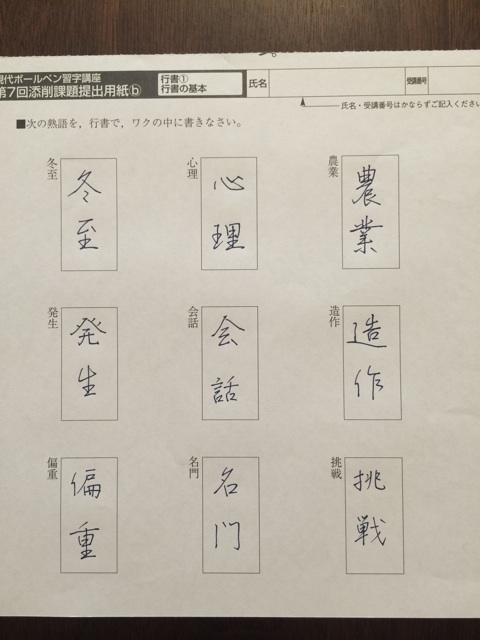 現代ボールペン習字講座
第7回添削課題提出用紙ⓑ
行書①
行書の基本
氏名
受講番号
氏名・受講番号はかならずご記入ください
■次の熟語を，行書で，ワクの中に書きなさい。
農業
農業
心理
心理
冬至
冬至
造作
造作
会話
会話
発生
発生
挑戦
挑戦
名門
名門
偏重
偏重